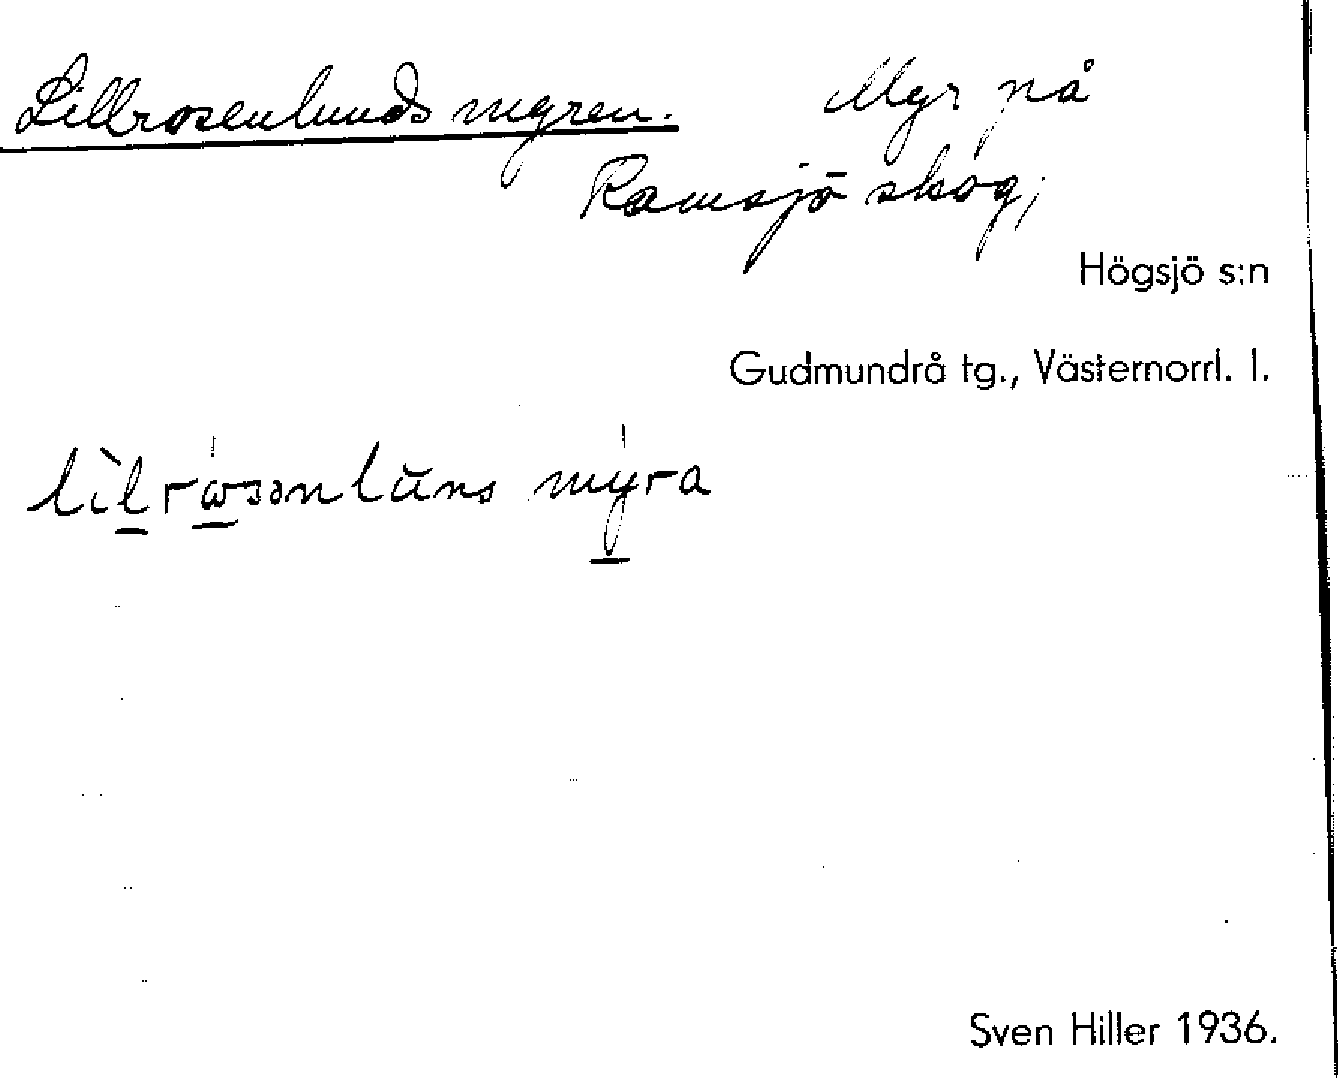 Lillrosenlundsmyren. Myr på
Ramsjö skog;
Högsjö s:n
Gudmundrå tg., Västernorrl. l.
lìlrósənlŭns mýra
Sven Hiller 1936.